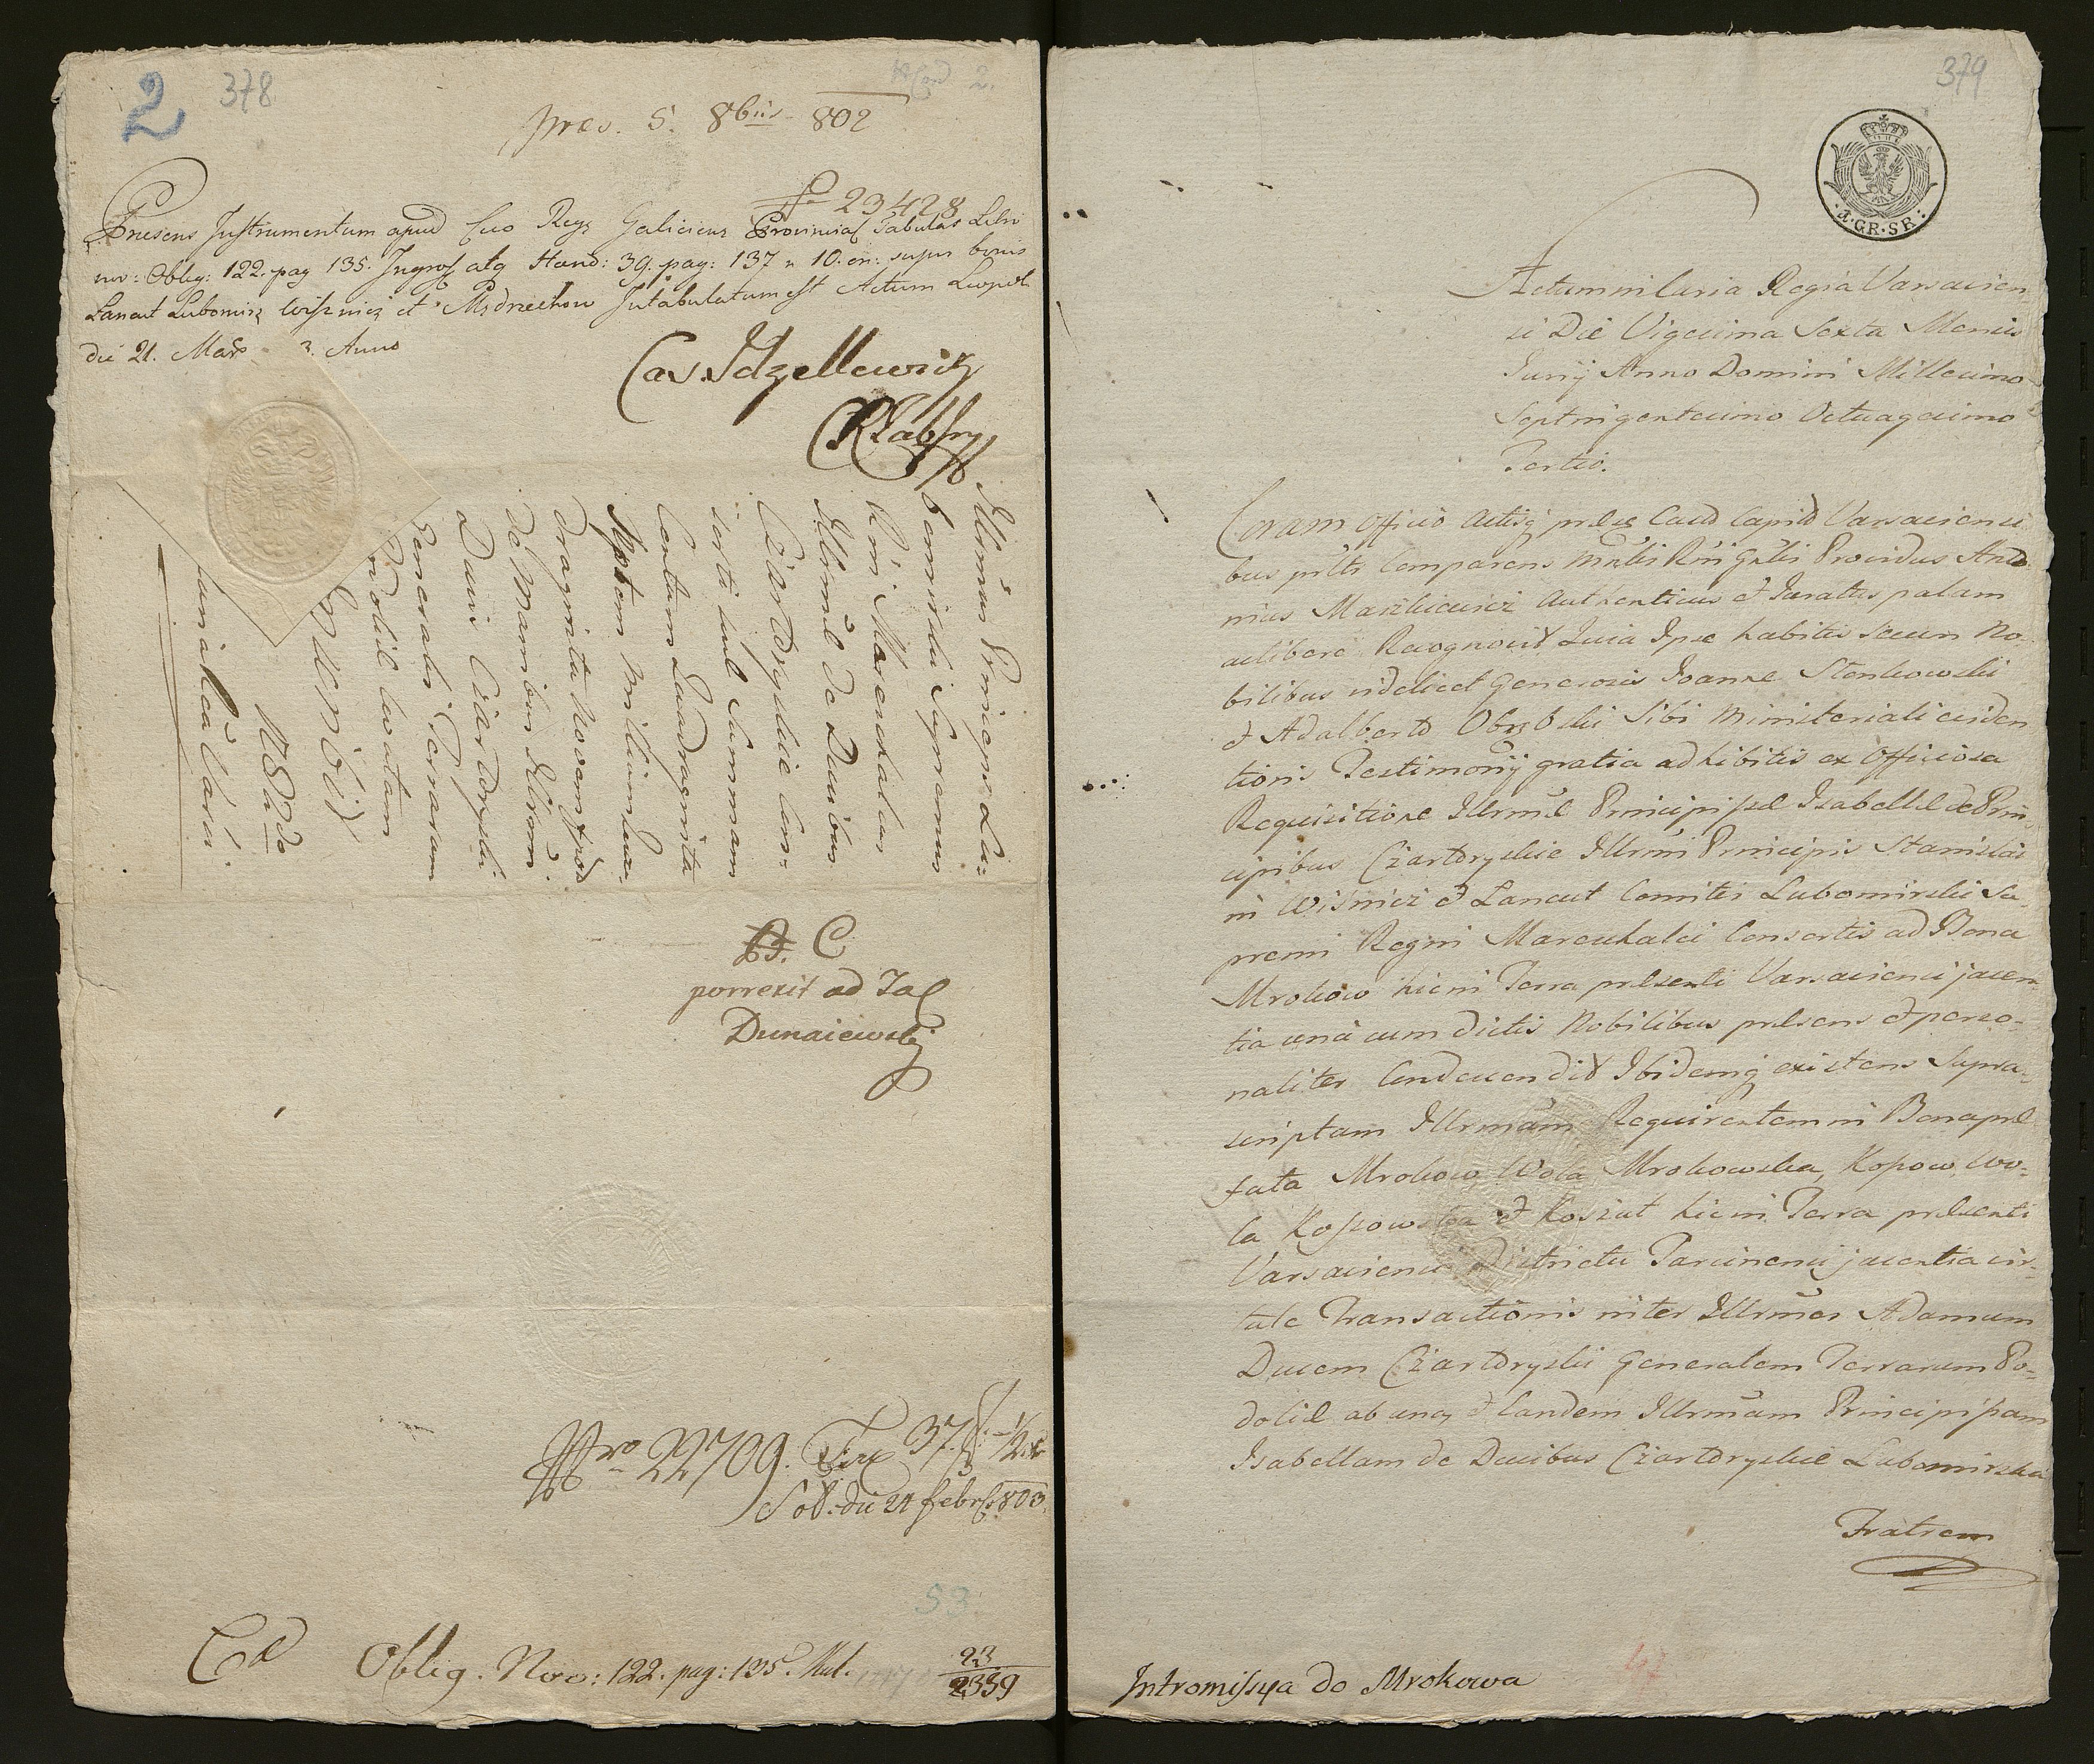 2
378
2.
præs. 5. 8bris 802
23428
Præsens Instrumentum apud Cæo Regs Galiciens Provincial Tabulas Libri
nro: Oblig: 122. pag 135. Ingross atq Hæred: 39. pag: 137 n 10. on: super bonis
Lancut Lubomirz Wisznicz et Mędrzechow Intabulatum est Actum Leopol
die 21. 3. Anno
Cas. Idzellewicz
Illrmus Princeps Lu=
bomirski Supremus
R'ni Mareschalcus
Illrmæ de Ducibus
Czartoryskie Con=
sorti suæ Summam
Centum Quadraginta
Septem Millium Qua=
draginta Novem fpol
de Manibus Illrmi
Ducis Czartoryski
Generalis Terrarum
Podoliæ levatam
porrexit ad Tab
Dunaiewskij
Nro 22709. Tax 37 f. 1/2 xr
Sol. die 21 Febr 803.
53
Oblig. Novo: 122. pag: 135.
23
2339
379
4. GR. SR.
Actum in Curia Regia Varsavien=
si Die Vigesima Sexta Mensis
Junij Anno Domini Millesimo
Septingentesimo Octuagesimo
Tertio.
Coram Officio Actisq præs Cast Capit Varsaviensi
bus prltr Comparens Mnrlis Rni Gnlis Providus Anto
nius authenticus et Juratus palam
aclibere Recognovit Quia Ipse habitis secum No=
bilibus videlicet Generosis Joanne Stenkowski
et Adalberto Sibi Ministeriali eviden
tioris Testimonij gratia adhibitis ex Officiosa
Requisitione Illrmæ Principissæ Isabellæ de Prin
cipibus Czartoryskie Illrmi Principis Stanislai
in Wisnicz et Lancut Comitis Lubomirski Su=
premi Regni Mareschalci Consortis ad Bona
Mrokow hic in Terra præsenti Varsaviensi jacen
tia una cum dictis Nobilibus præsens et perso=
naliter Condescendit Ibidemq existens Supra=
scriptam Illrmam Requirentem in Bona præ
fata Mrokow, Wola Mrokowska, Kossow, Wo=
la Kossowska et Koszut hic in Terra præsenti
Varsaviensi Districtu Tarcinensi jacentia vir=
tute Transactionis inter Illrmos Adamum
Ducem Czartoryski Generalem Terrarum Po=
doliæ ab una et Eandem Illrmam Principissam
Isabellam de Ducibus Czartoryskie Lubomirska
Fratrem
Intromissya do Mrokowa